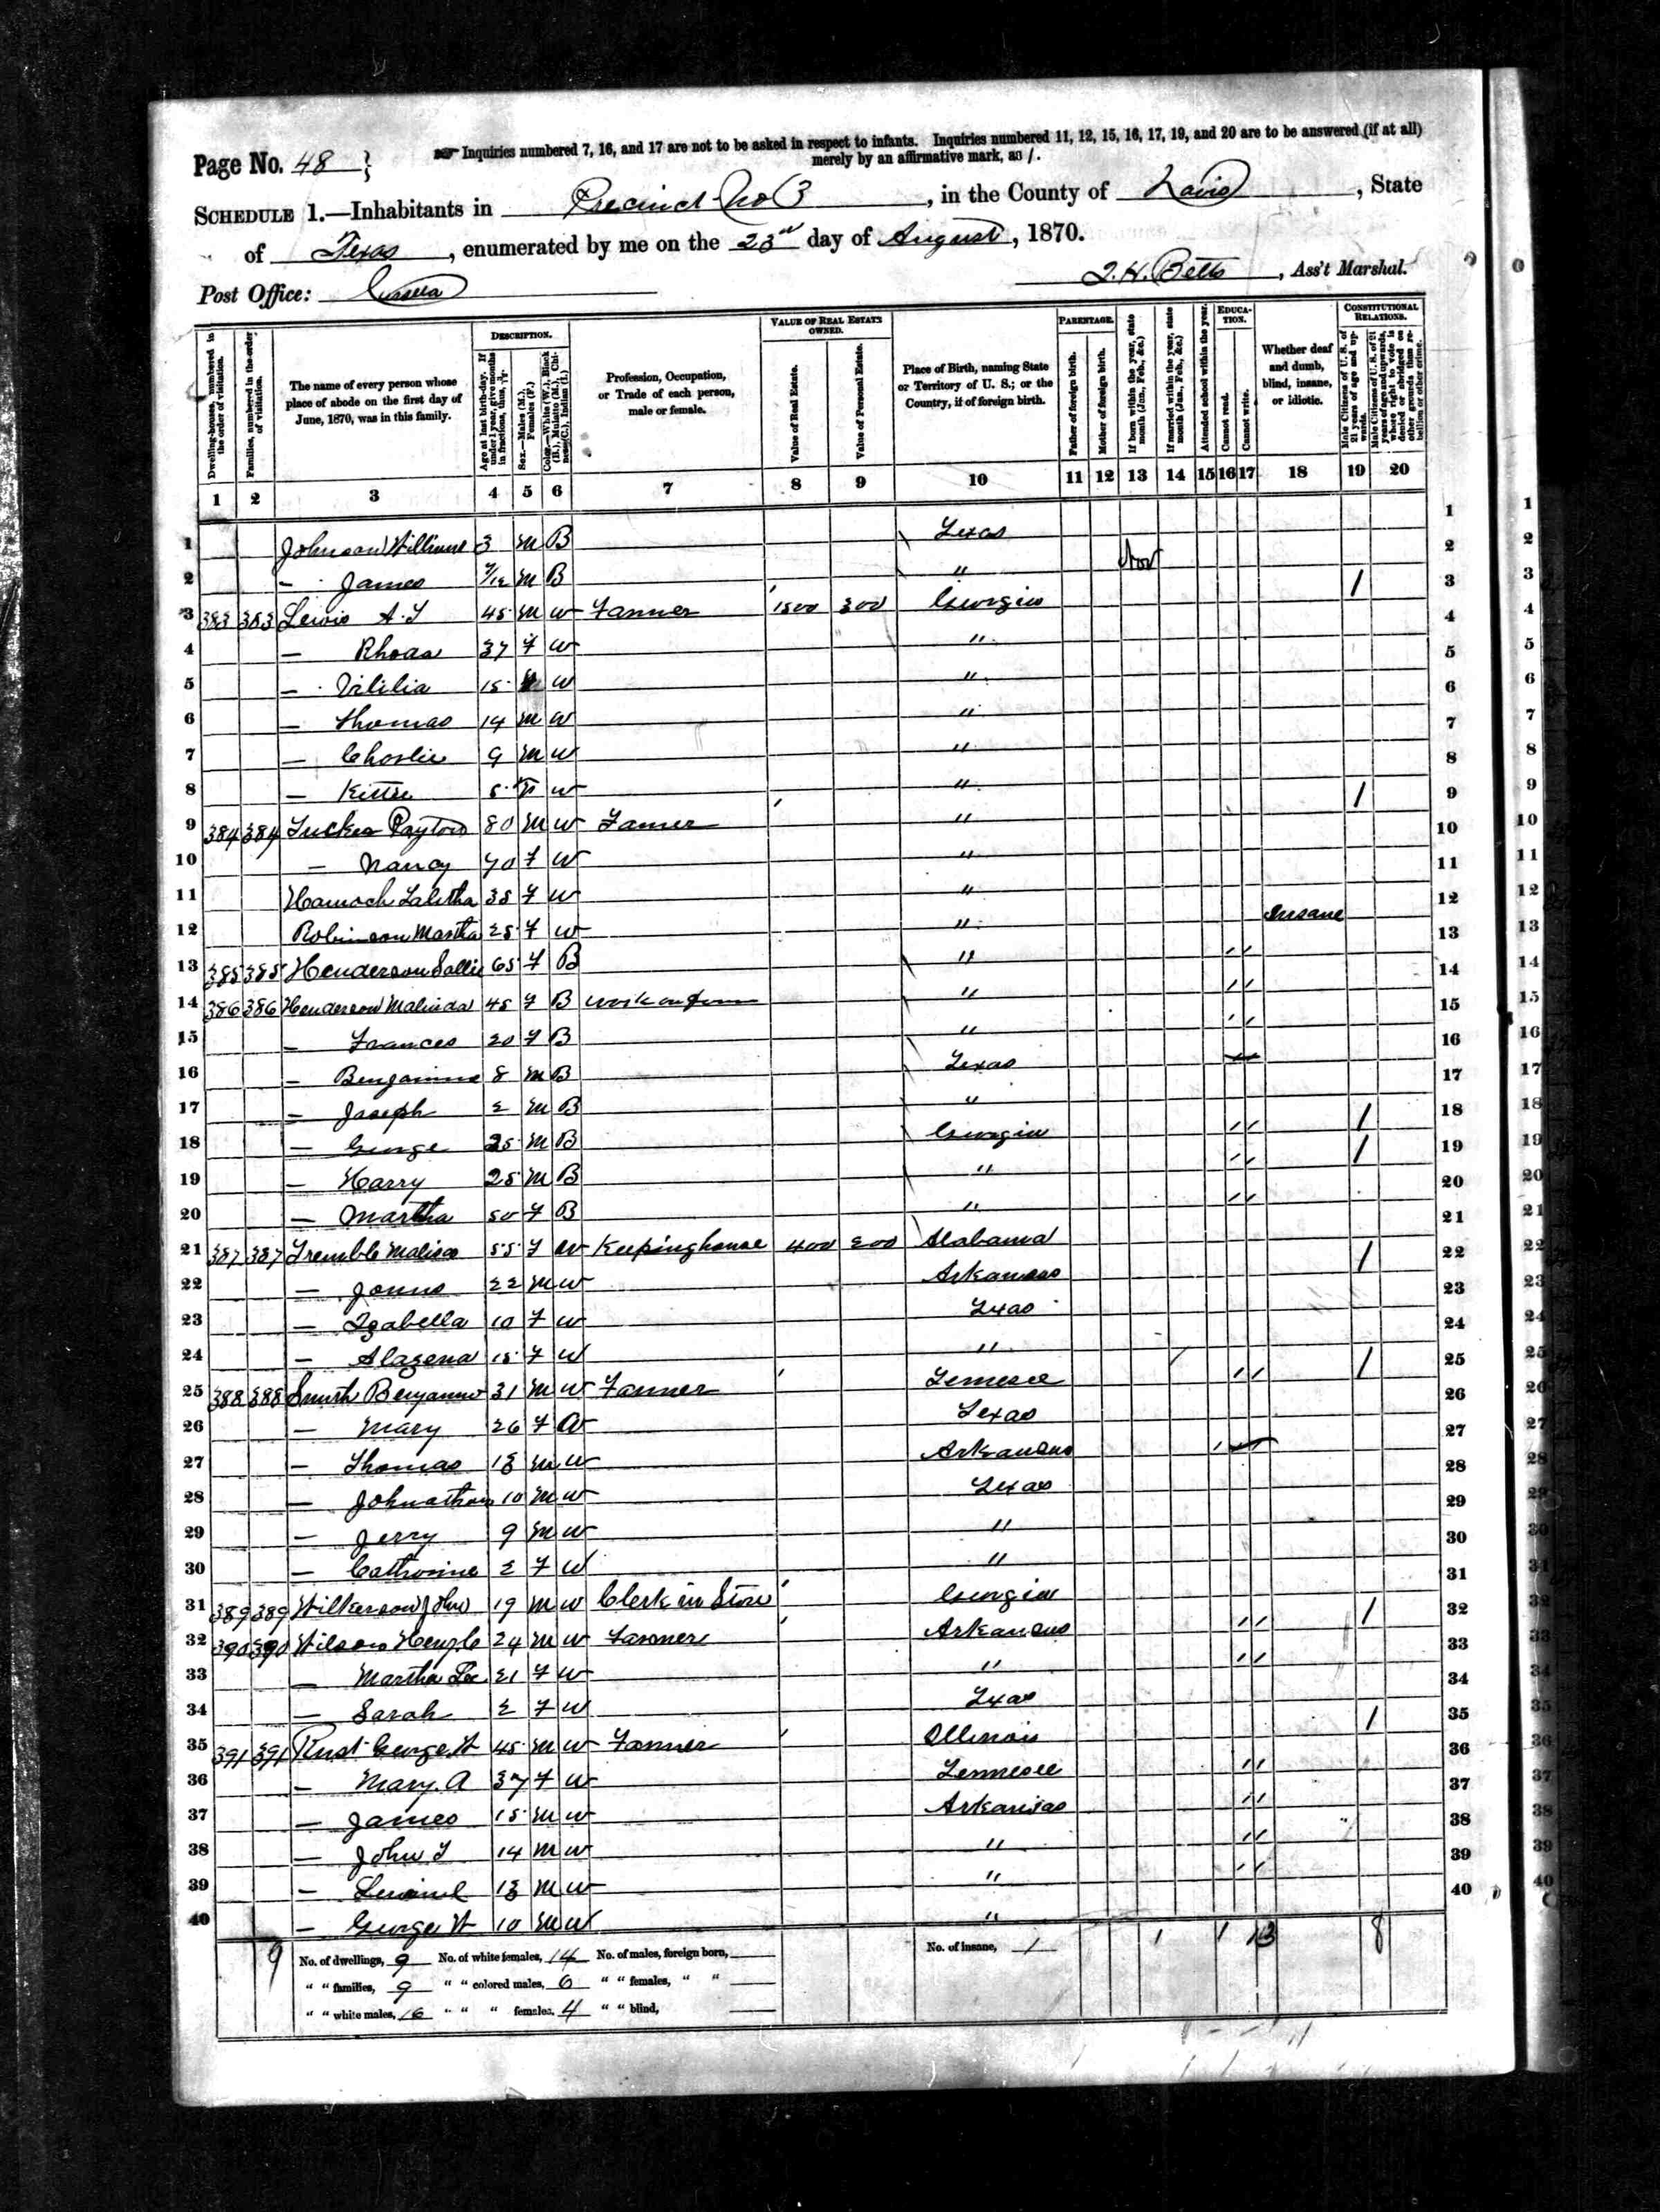 Page No. 48
☞ Inquiries numbered 7, 16, and 17 are not to be asked in respect to infants. Inquiries numbered 11, 12, 15, 16, 17, 19, and 20 are to be answered (if at all)
merely by an affirmative mark, as /.
SCHEDULE 1.—Inhabitants in Precinct No 3, in the County of Davis, State
of Texas, enumerated by me on the 23rd day of August, 1870.
Post Office: Cusseta
J. H. Betts, Ass't Marshal.
Dwelling-houses, numbered in the order of visitation.
Families, numbered in the order of visitation.
The name of every person whose place of abode on the first day of June, 1870, was in this family.
DESCRIPTION.
Age at last birth-day. If under 1 year, give months in fractions, thus, 3/12
Sex.—Males (M.), Females (F.)
Color.—White (W.), Black (B.), Mulatto (M.), Chinese (C.), Indian (I.)
Profession, Occupation, or Trade of each person, male or female.
VALUE OF REAL ESTATE OWNED.
Value of Real Estate.
Value of Personal Estate.
Place of Birth, naming State or Territory of U. S.; or the Country, if of foreign birth.
PARENTAGE.
Father of foreign birth.
Mother of foreign birth.
If born within the year, state month (Jan., Feb., &c.)
If married within the year, state month (Jan., Feb., &c.)
Attended school within the year.
EDUCATION.
Cannot read.
Cannot write.
Whether deaf and dumb, blind, insane, or idiotic.
CONSTITUTIONAL RELATIONS.
Male Citizens of U. S. of 21 years of age and upwards.
Male Citizens of U. S. of 21 years of age and upwards, where right to vote is denied or abridged on other grounds than rebellion or other crime.
1 2 3 4 5 6 7 8 9 10 11 12 13 14 15 16 17 18 19 20
1 Johnson William 3 M B Texas 1
2 — James 7/12 M B " Nov 2
3 383 383 Lewis A. J 45 M W Farmer 1500 300 Georgia / 3
4 — Rhoda 37 F W " 4
5 — 15 W " 5
6 — Thomas 14 M W " 6
7 — Charlie 9 M W " 7
8 — Kittie 5 F W " 8
9 384 384 Tucker Payton 80 M W Farmer " / 9
10 — Nancy 70 F W " 10
11 Lalitha 38 F W " 11
12 Robinson Martha 25 F W " Insane 12
13 385 385 Henderson Sallie 65 F B " / / 13
14 386 386 Henderson Malinda 45 F B work on farm " / / 14
15 — Frances 20 F B " / / 15
16 — Benjamine 8 M B Texas 16
17 — Joseph 2 M B " 17
18 — George 25 M B Georgia / / / 18
19 — Harry 25 M B " / / / 19
20 — Martha 50 F B " / / 20
21 387 387 Tremble Malissa 55 F W Keeping house 400 200 Alabama 21
22 — 22 M W Arkansas / 22
23 — Izabella 10 F W Texas 23
24 — Alazena 15 F W " 24
25 388 388 Smith Benjamin 31 M W Farmer Tennesee / / / 25
26 — Mary 26 F W Texas 26
27 — Thomas 13 M W Arkansas / 27
28 — Johnathan 10 M W Texas 28
29 — Jerry 9 M W " 29
30 — Catherine 2 F W " 30
31 389 389 Wilkerson John 19 M W Clerk in Store Georgia 31
32 390 390 Wilson 24 M W Farmer Arkansas / / / 32
33 — Martha Lee 21 F W " / / 33
34 — Sarah 2 F W Texas 34
35 391 391 Rust George W 45 M W Farmer Illinois / 35
36 — Mary. A 37 F W Tennesee / / 36
37 — James 15 M W Arkansas / / 37
38 — John T 14 M W " / / 38
39 — 13 M W " / / 39
40 — George W 10 M W " 40
9 No. of dwellings, 9 No. of white females, 14 No. of males, foreign born, No. of insane, 1 1 1 13 8
" " families, 9 " " colored males, 6 " " females, " "
" " white males, 16 " " " females, 4 " " blind,